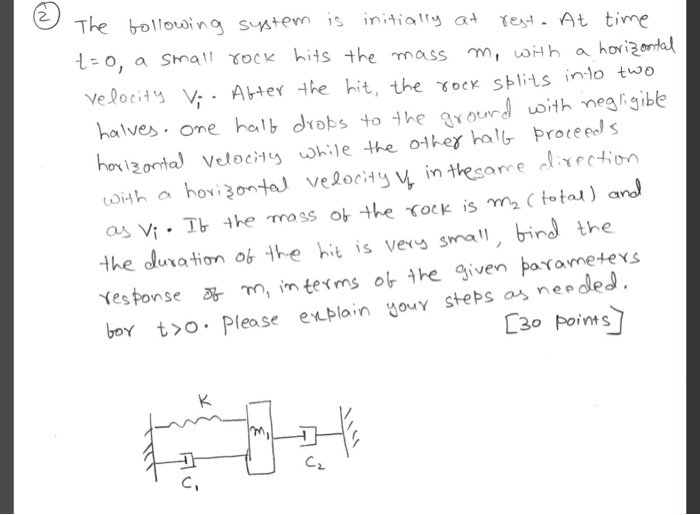 2 The following system is initially at rest. At time
t=0, a small rock hits the mass m, with a horizontal
velocity Vi. After the hit, the rock splits into two
halves. one half drops to the ground with negligible
horizontal velocity while the other half proceeds
with a horizontal velocity Vf in the same direction
as Vi. If the mass of the rock is m2 (total) and
the duration of the hit is very small, find the
response of m, in terms of the given parameters
for t>0. Please explain your steps as needed.
[30 points]
K
m1
C2
C1